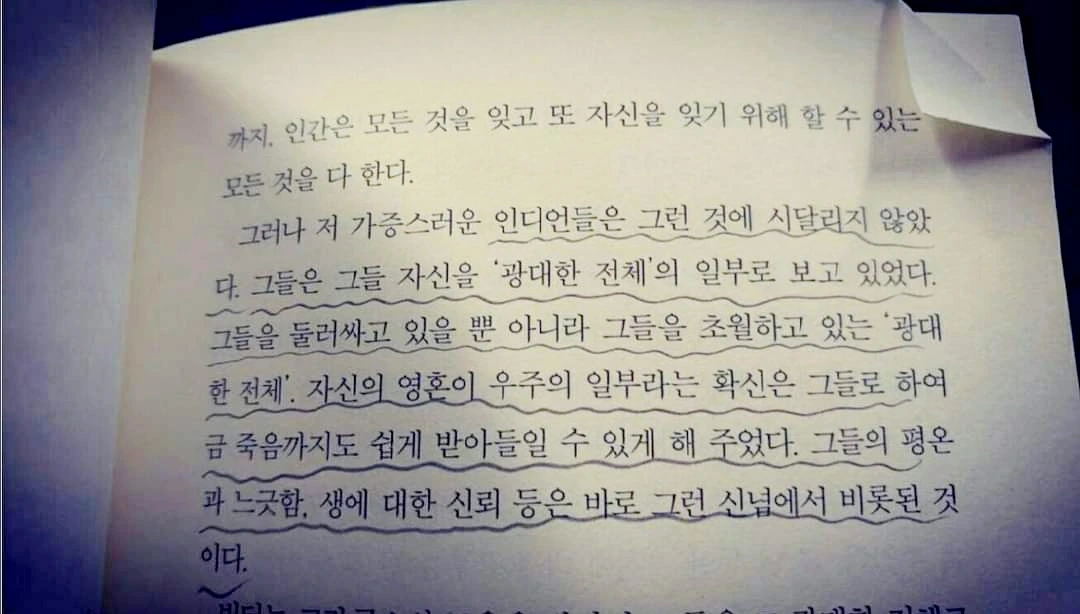 까지. 인간은 모든 것을 잊고 또 자신을 잊기 위해 할 수 있는
모든 것을 다 한다.
그러나 저 가증스러운 인디언들은 그런 것에 시달리지 않았
다. 그들은 그들 자신을 ‘광대한 전체’의 일부로 보고 있었다.
그들을 둘러싸고 있을 뿐 아니라 그들을 초월하고 있는 ‘광대
한 전체’. 자신의 영혼이 우주의 일부라는 확신은 그들로 하여
금 죽음까지도 쉽게 받아들일 수 있게 해 주었다. 그들의 평온
과 느긋함, 생에 대한 신뢰 등은 바로 그런 신념에서 비롯된 것
이다.